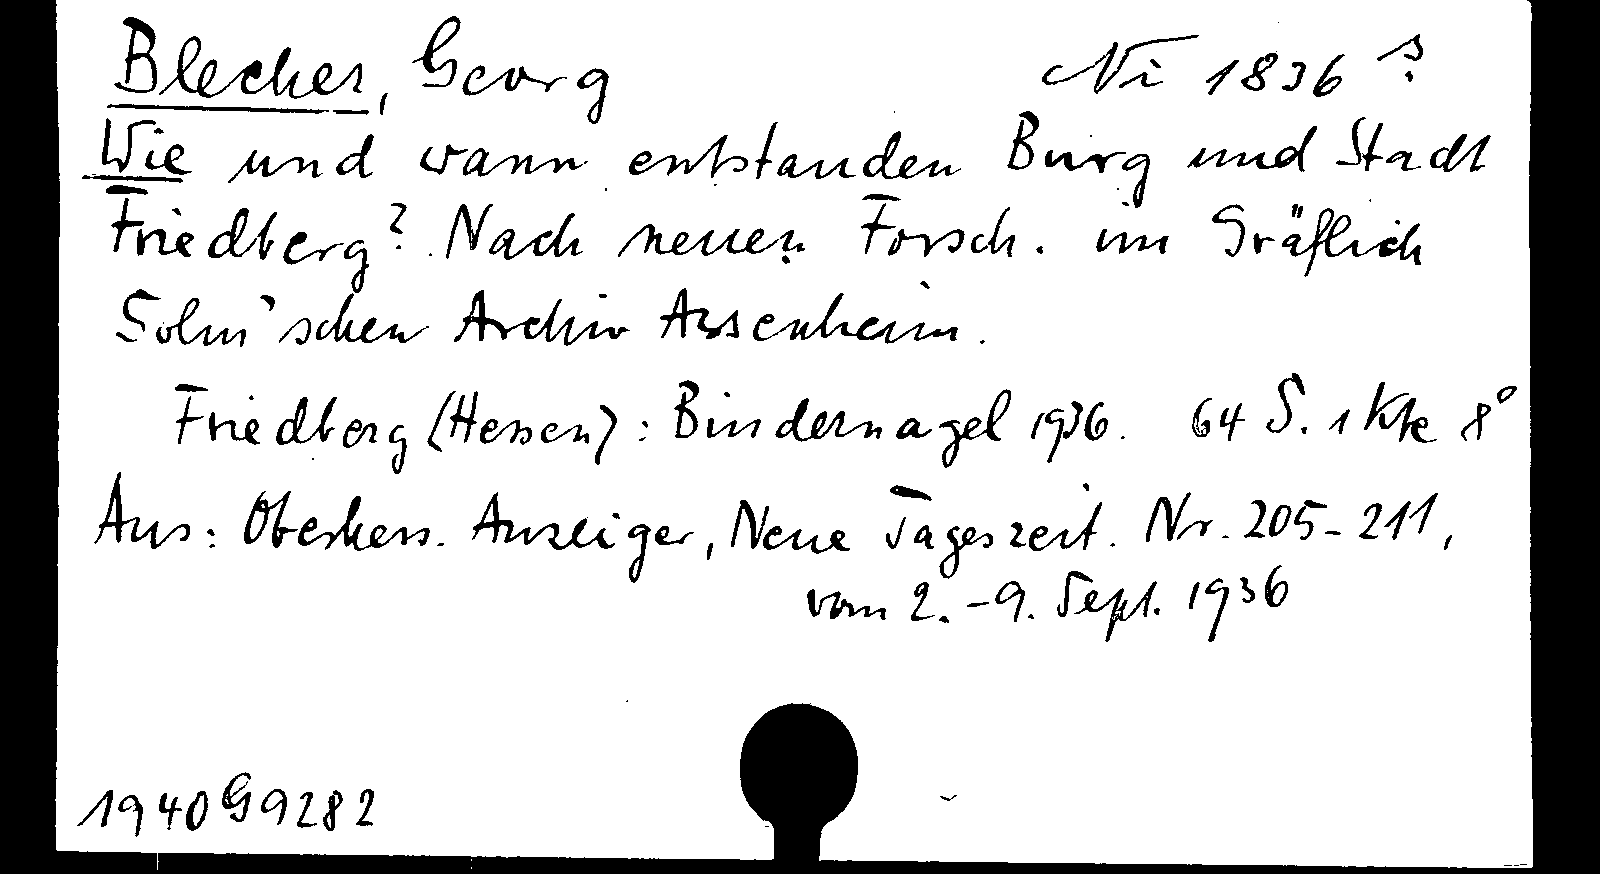 Blecher, Georg
Ni 1836 ?
Wie und wann entstanden Burg und Stadt
Friedberg? Nach neuen Forsch. im Gräflich
Solm'schen Archiv Assenheim.
Friedberg (Hessen): Bindernagel 1936. 64 S. 1 Kte 8°
Aus: Oberhess. Anzeiger, Neue Tageszeit. Nr. 205-211,
vom 2.-9. Sept. 1936
1940 G 9282